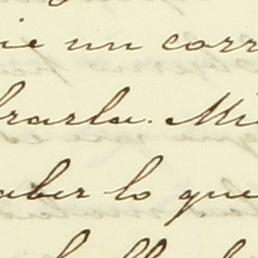 ie un corr
brarla. Mi
aber lo que